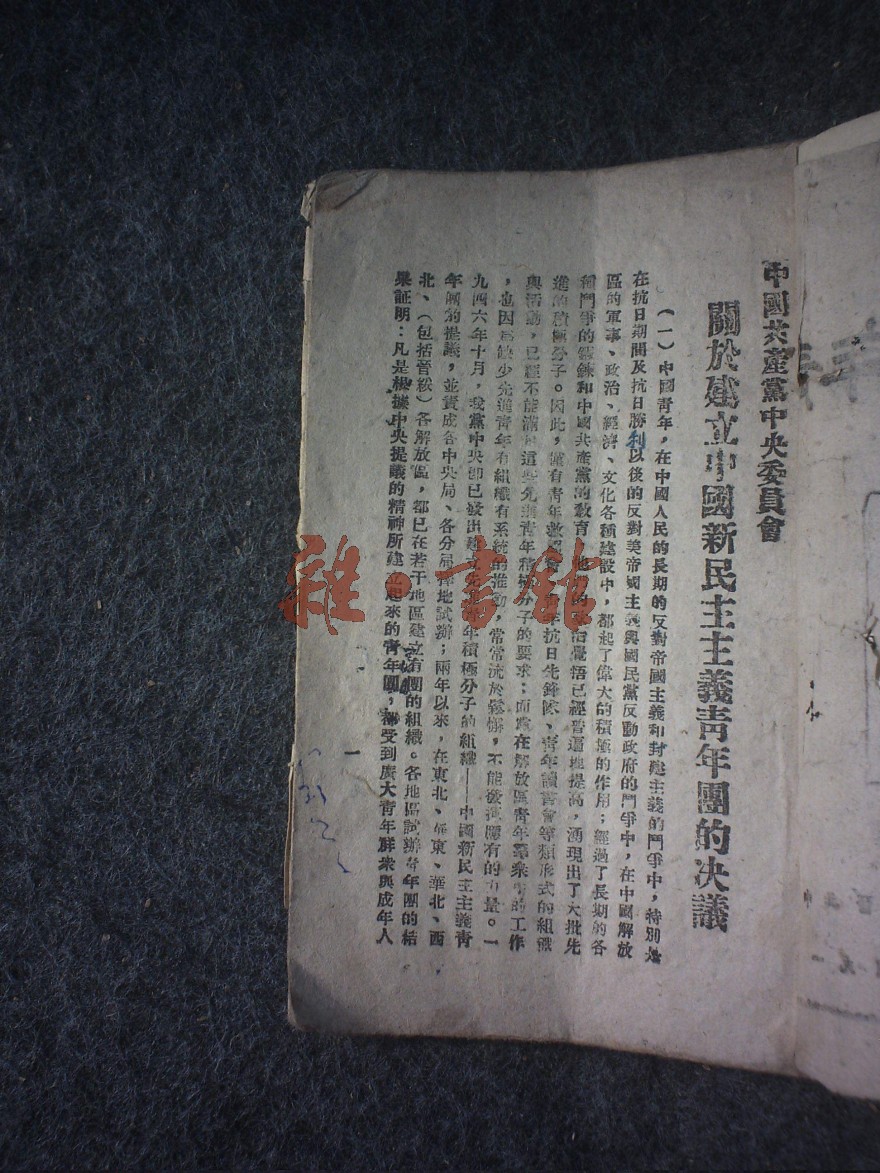 中國共產黨中央委員會
關於建立中國新民主主義靑年團的決議
(一)中國青年,在中國人民的長期的反對帝國主義和封建主義的鬥爭中,特別是
在抗日期間及抗日勝利以後的反對美帝國主義與國民黨反動政府的鬥爭中,在中國解放
區的軍事、政治、經濟、文化各種建設中,都起了偉大的積極的作用;經過了長期的各
種鬥爭的鍛鍊和中國共產黨的教育,他們的政治覺悟已經普遍地提高,湧現出了大批先
進的積極分子。因此,僅有青年救國會、青年抗日先鋒隊、青年讀書會等類形式的組織
與活動,已經不能滿足這些先進青年積極分子的要求;而黨在解放區青年羣衆中的工作
,也因爲缺少先進青年有組織有系統的推動,常常流於鬆懈,不能發揮應有的力量。一
九四六年十月,我黨中央即已發出建立先進青年積極分子的組織——中國新民主主義青
年團的提議,並責成各中央局、各分局擇地試辦;兩年以來,在東北、華東、華北、西
北、(包括晉綏)各解放區,都已在若干地區建立有團的組織。各地區試辦青年團的結
果証明:凡是根據中央提議的精神所建立起來的青年團,都受到廣大青年群衆與成年人
一
雜·書館